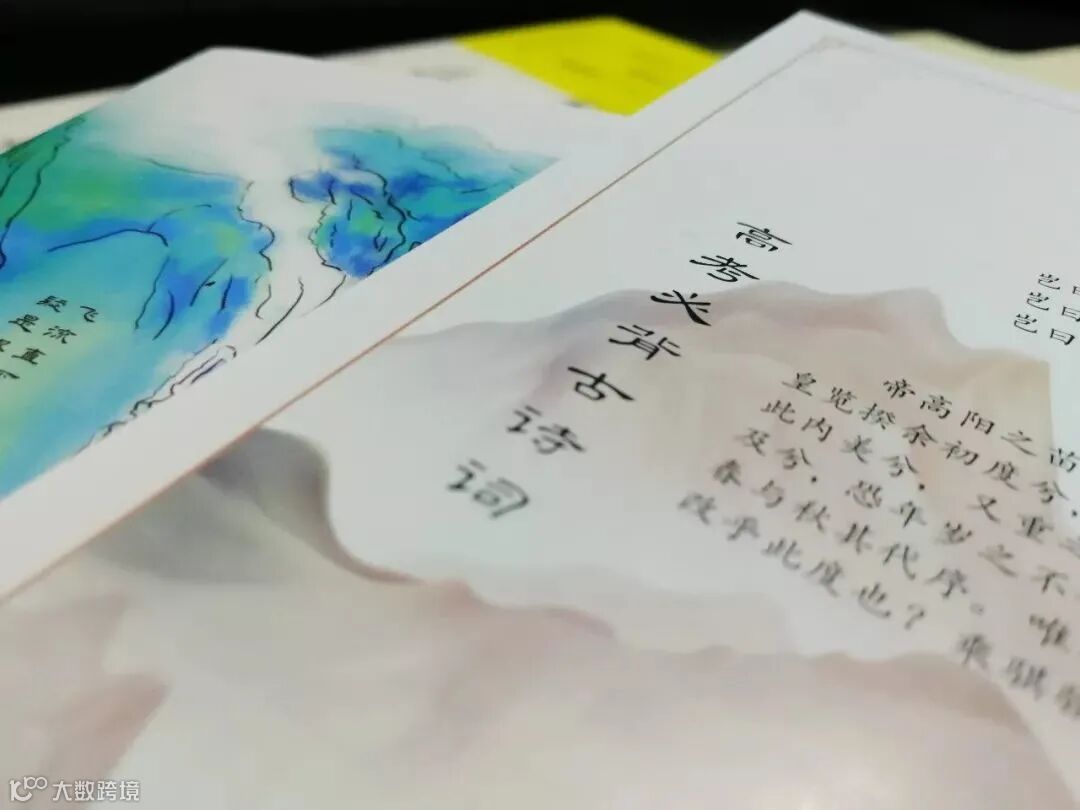 飞流直
疑是
高考必背古诗词
岂曰
岂曰
岂曰
帝高阳之苗
皇览揆余初度兮，
此内美兮，又重之
及兮，恐年岁之不
春与秋其代序。唯
改乎此度也？乘骐
大数跨境